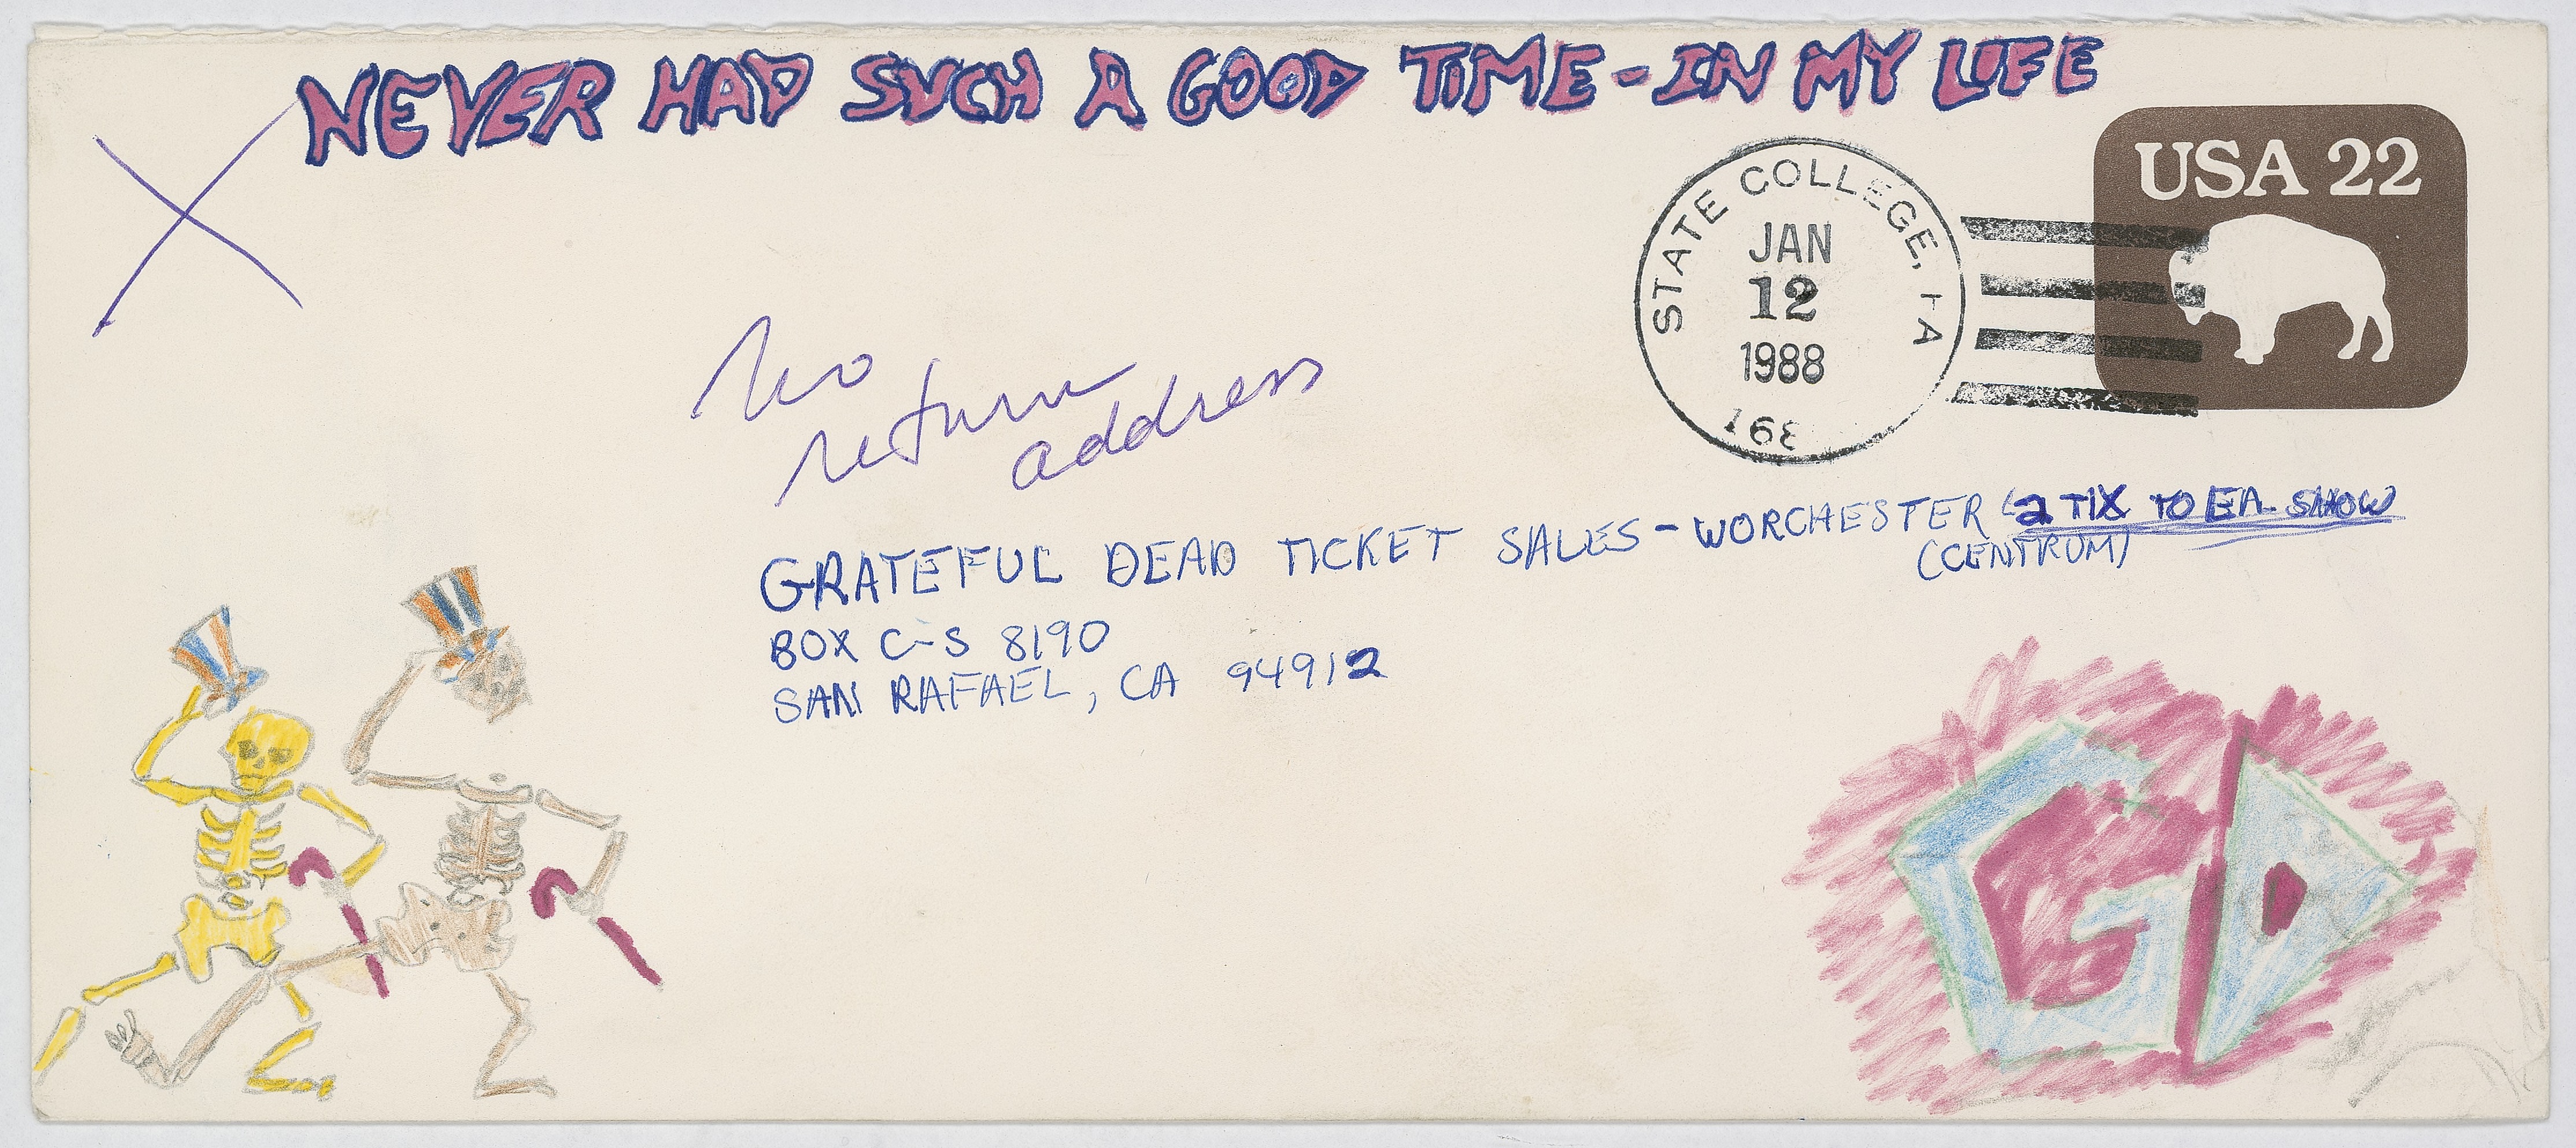 NEVER HAD SUCH A GOOD TIME - IN MY LIFE
USA 22
STATE COLLEGE, PA
JAN
12
1988
168
No
return
address
GRATEFUL DEAD TICKET SALES - WORCHESTER (2 TIX TO EA. SHOW
(CENTRUM)
BOX C-S 8190
SAN RAFAEL, CA 94912
GD